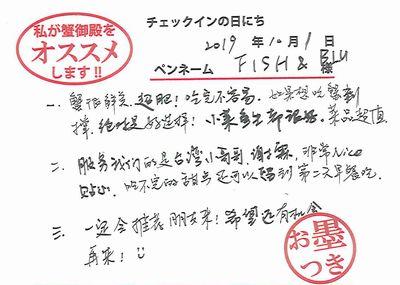 私が蟹御殿を
オススメ
します!!
チェックインの日にち
2019 年 10 月 1 日
ペンネーム FISH & BLU 様
一、蟹很鲜美,超肥!吃完不容易。如果想吃蟹到
撑,绝对是好选择!小菜 都很好。菜品超值
二、服务我们的是台湾小哥哥,谢 ,非常Nice
贴心。吃不完的甜点还可以留到第二天早餐吃。
三、一定会推荐朋友来!希望还有机会
再来!
お墨
つき